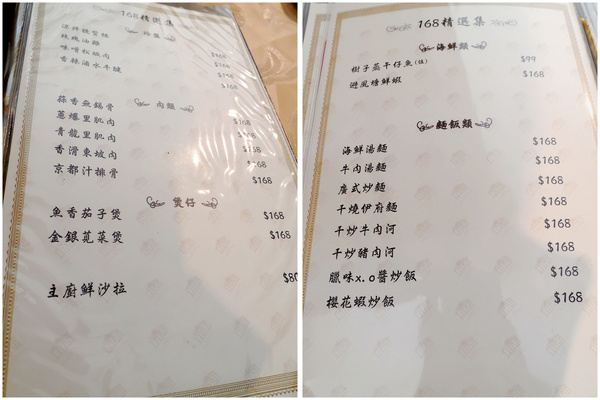 168精選集
冷盤
味噌松板肉
香辣滷水牛腱
$168
$168
$168
$168
肉類
蒜香無錫骨
$168
蔥爆里肌肉
$168
青龍里肌肉
$168
香滑東坡肉
$168
京都汁排骨
$168
煲仔
魚香茄子煲
$168
金銀莧菜煲
$168
主廚鮮沙拉
$80
168精選集
海鮮類
樹子蒸午仔魚(隻)
$99
避風塘鮮蝦
$168
麵飯類
海鮮湯麵
$168
牛肉湯麵
$168
廣式炒麵
$168
干燒伊府麵
$168
干炒牛肉河
$168
干炒豬肉河
$168
臘味x.o醬炒飯
$168
櫻花蝦炒飯
$168